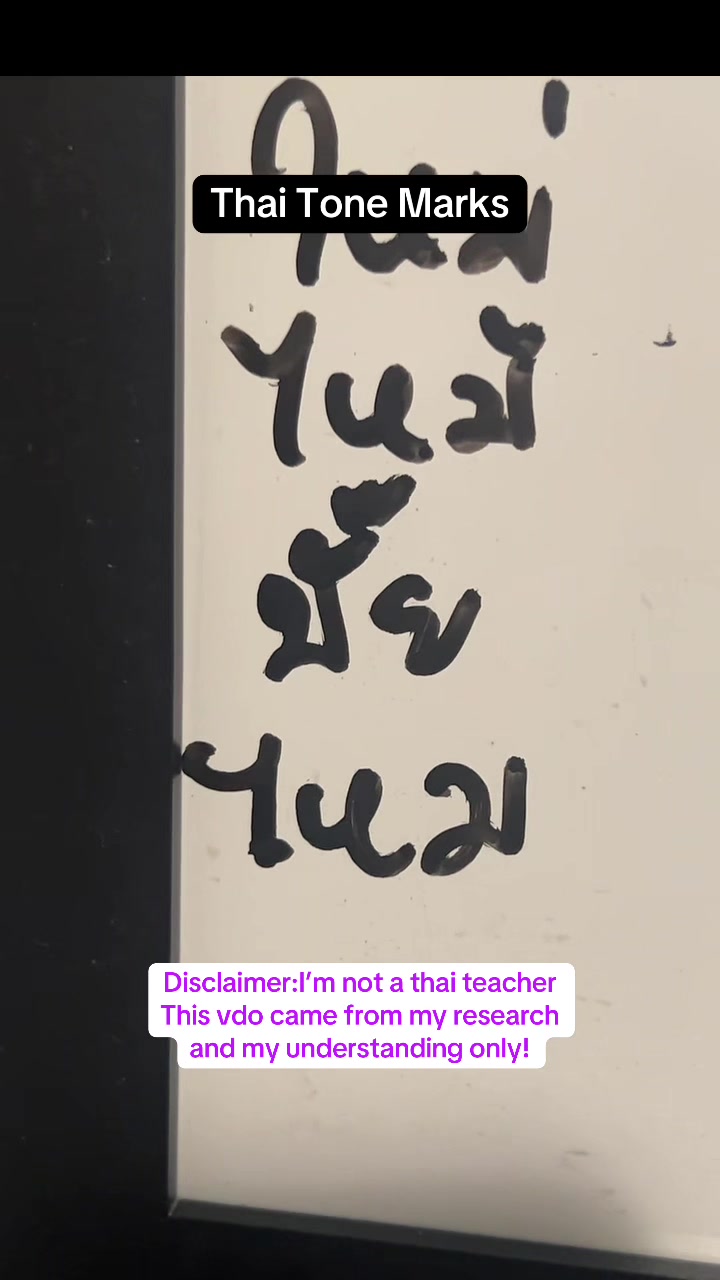 Thai Tone Marks
ใหม่
ไหม้
มั้ย
ไหม
Disclaimer:I'm not a thai teacher
This vdo came from my research
and my understanding only!